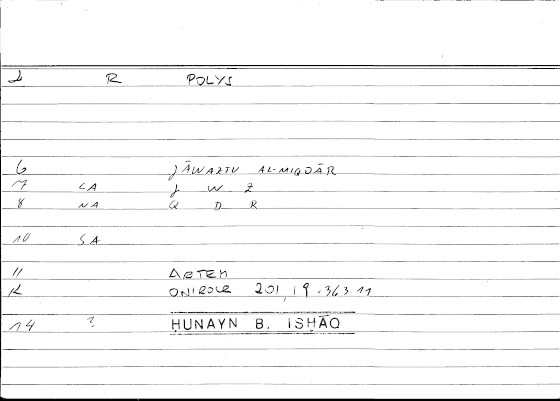 R POLYS
6 JĀWAZTU AL-MIQDĀR
7 CA J W Z
8 NA Q D R
10 SA
11 ARTEM
ONIROCR 201,19.363.11
14 ? ḤUNAYN B. ISḤĀQ